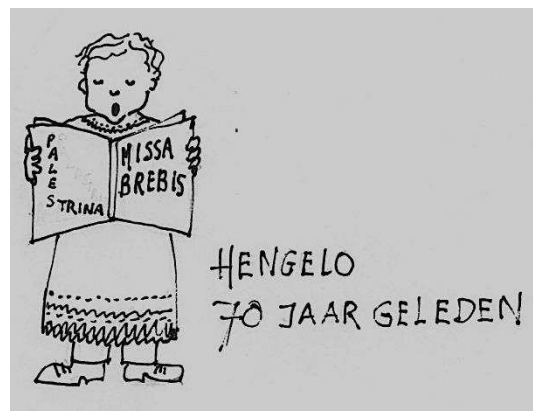 PALESTRINA
MISSA
BREBIS
HENGELO
70 JAAR GELEDEN